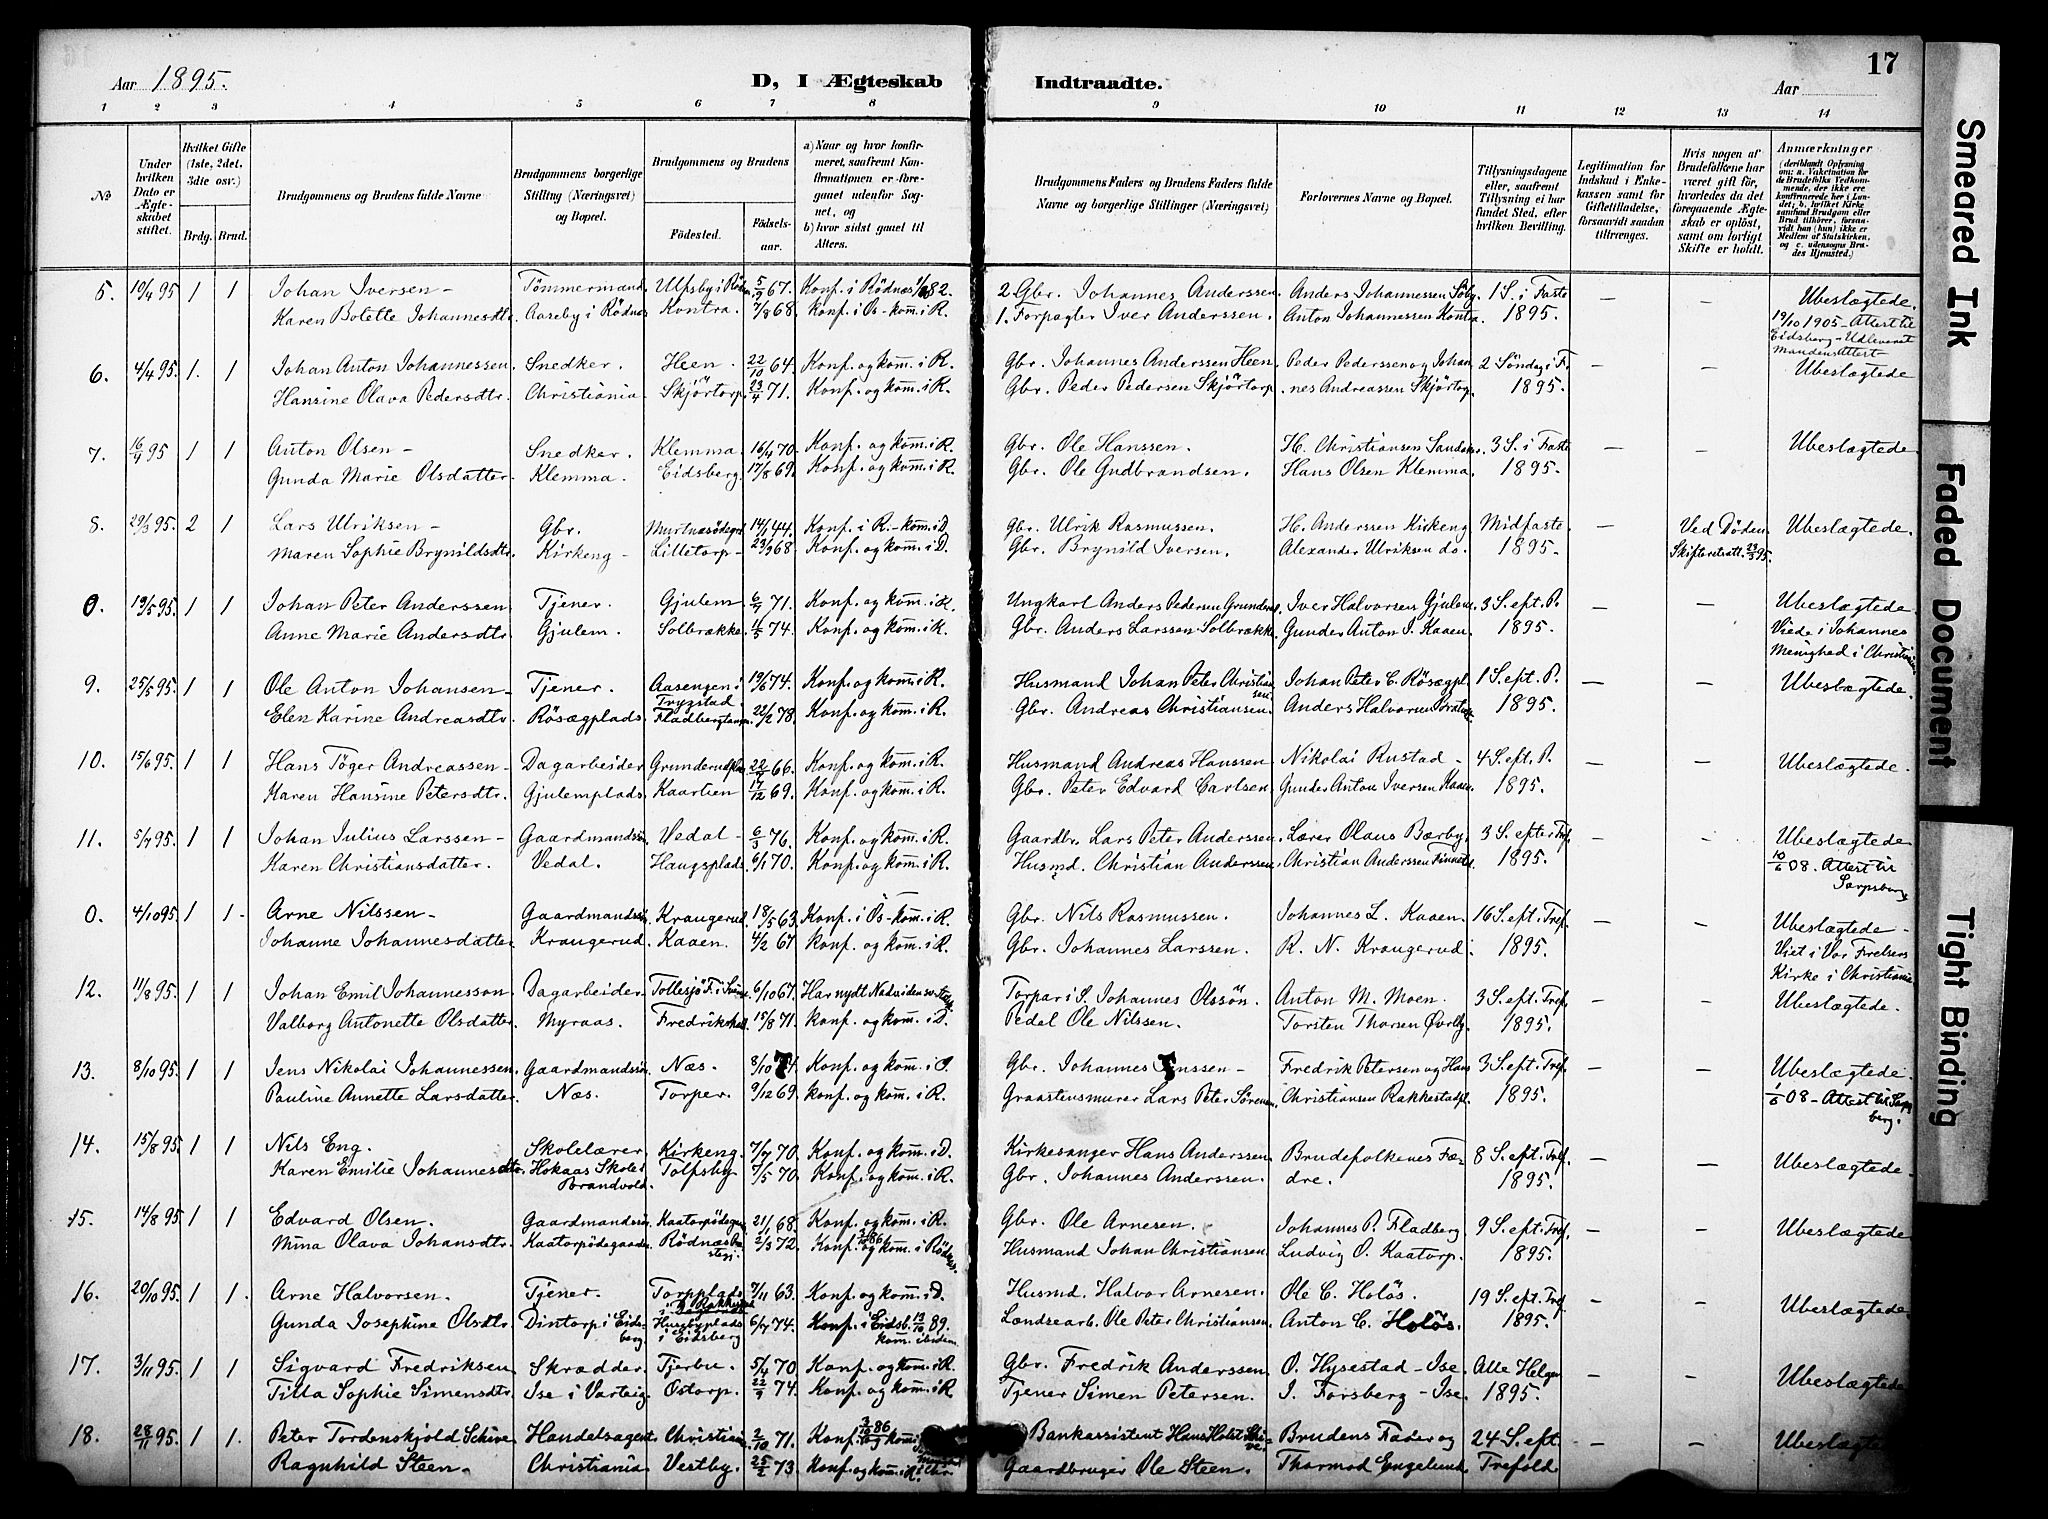 Aar 1895. D, I Ægteskab Indtraadte. Aar 17
1 2 3 4 5 6 7 8 9 10 11 12 13 14
No
Under hvilken Dato er Ægteskabet stiftet.
Hvilket Gifte (1ste, 2det, 3die osv.)
Brdg. Brud.
Brudgommens og Brudens fulde Navne
Brudgommens borgerlige Stilling (Næringsvei) og Bopæl.
Brudgommens og Brudens
Fødested. Fødselsaar.
a) Naar og hvor konfirmeret, saafremt Konfirmationen er foregaaet udenfor Sognet, og
b) hvor sidst gaaet til Alters.
Brudgommens Faders og Brudens Faders fulde Navne og borgerlige Stillinger (Næringsvei)
Forlovernes Navne og Bopæl.
Tillysningsdagene eller, saafremt Tillysning ei har fundet Sted, efter hvilken Bevilling.
Legitimation for Indskud i Enkekassen samt for Giftetilladelse, forsaavidt saadan tiltrænges.
Hvis nogen af Brudefolkene har været gift før, hvorledes da det foregaaende Ægteskab er opløst, samt om lovligt Skifte er holdt.
Anmærkninger (deriblandt Oplysning om: a. Vakcination for de Brudefolks Vedkommende, der ikke ere konfirmerede her i Landet; b. hvilket Kirkesamfund Brudgom eller Brud tilhører, forsaavidt han (hun) ikke er Medlem af Statskirken, og c. udensogns Brudes Hjemsted.)
5. 10/4 95 1 1 Johan Iversen - Tømmermand Ulfsby i Røden 5/9 67. Konf. i Rødnæs 82. 2. Gbr. Johannes Anderssen. Anders Johannessen 1 S. i Faste — — Ubeslægtede.
Karen Botette Johannesdtr. Aaseby i Rødnæs Kontra. 7/8 68. Konf. i Øs - kom. i R. 1. Forpagter Iver Anderssen. Anton Johannessen Kontra. 1895. 19/10 1905 - Attest til Eidsberg - Udleveret Mandens Attest -
6. 4/4 95. 1. 1 Johan Anton Johannessen Snedker. Heen. 22/10 64. Konf. og kom. i R. Gbr. Johannes Anderssen Heen Peder Pederssen og Johan 2 Søndag i F. — — Ubeslægtede
Hansine Olava Pedersdtr. Christiania Skjørtorp. 23/4 71. Konf. og kom. i R. Gbr. Peder Pedersen Skjørtorp. nes Andreassen Skjørtorp. 1895.
7. 16/4 95 1 1 Anton Olsen - Snedker. Klemma 16/4 70. Konf. og kom. i R. Gbr. Ole Hanssen. H. Christiansen 3 S. i Faste — — Ubeslægtede.
Gunda Marie Olsdatter. Klemma. Eidsberg. 17/8 69. Konf. og kom. i R. Gbr. Ole Gudbrandsen. Hans Olsen Klemma. 1895.
8. 29/3 95. 2 1 Lars Ulriksen - Gbr. 14/1 44. Konf. i R. - kom. i D. Gbr. Ulrik Rasmussen. H. Anderssen Kirkeng Midfaste — Ved Døden. Ubeslægtede.
Maren Sophie Brynildsdtr. Kirkeng - Lilletorp - 23/9 68. Konf. og kom. i D. Gbr. Brynild Iversen. Alexander Ulriksen do. 1895. 23/3 95.
0. 19/5 95. 1 1 Johan Peter Anderssen Tjener. Gjulem 6/7 71. Konf. og kom. i R. Ungkarl Anders Pedersen Iver Halvorsen Gjulem 3 S. eft. P. — — Ubeslægtede
Anne Marie Andersdtr. Gjulem. Solbrække 11/5 74. Konf. og kom. i R. Gbr. Anders Larssen Solbrække. Gunder Anton I. Kaaen. 1895. Viede i Johannes Menighed i Christiania
9. 25/5 95. 1 1 Ole Anton Johansen - Tjener. Aasengen i Trygstad 19/6 74. Konf. og kom. i R. Husmand Johan Peter Christiansen Johan Peter C. Røsægpl. 1 S. eft. P. — — Ubeslægtede.
Elen Karine Andreasdtr. Røsægplads 22/2 78. Konf. og kom. i R. Gbr. Andreas Christiansen. Anders Halvorsen 1895.
10. 15/6 95. 1 1 Hans Tøger Andreassen - Dagarbeider 22/7 66. Konf. og kom. i R. Husmand Andreas Hanssen Nikolai Rustad - 4 S. eft. P. — — Ubeslægtede.
Karen Hansine Petersdtr. Gjulemplads 17/12 69. Konf. og kom. i R. Gbr. Peter Edvard Carlsen. Gunder Anton Iversen Kaaen. 1895.
11. 5/7 95. 1 1 Johan Julius Larssen - Gaardmandssøn Vedal - 6/3 76. Konf. og kom. i R. Gaardbr. Lars Peter Anderssen. Lærer Olaus Bærby. 3 S. efter Tref. — — Ubeslægtede
Karen Christiansdatter. Vedal. Haugsplads 6/1 70. Konf. og kom. i R. Husmd. Christian Anderssen. Christian Anderssen 1895. 10/6 08. Attest til Sarpsborg.
0. 4/10 95. 1 1 - Arne Nilssen - Gaardmandssøn Kraugerud. 18/5 63. Konf. i Øs - kom. i R. Gbr. Nils Rasmussen. Johannes L. Kaaen. 16 S. eft. Tref. — — Ubeslægtede -
Johanne Johannesdatter Kraugerud. Kaaen. 4/2 67. Konf. og kom. i R. Gbr. Johannes Larssen. R. N. Kraugerud. 1895. Viet i Vor Frelsers Kirke i Christiania
12. 11/8 95. 1 1 Johan Emil Johannesson. Dagarbeider. 6/10 67. Har nydt Nadv. Torpar i S. Johannes Olssön. Anton M. Moen. 3 S. eft. Tref. — — Ubeslægtede.
Valborg Antonette Olsdatter. Myraas. 15/8 71. Konf. og kom. i D. Pedel Ole Nilssen. Torsten Thorsen Øverby. 1895.
13. 8/10 95. 1 1 Jens Nikolai Johannessen. Gaardmandssøn. Næs. 8/10 74. Konf. og kom. i Gbr. Johannes Fredrik Petersen og Hans 3 S. eft. Tref. — — Ubeslægtede.
Pauline Annette Larsdatter. Næs. Torper. 9/12 69. Konf. og kom. i R. Graastensmurer Lars Peter Sørensen. Christiansen Rakkestadpl. 1895. 1/6 08 - Attest til Sarpsberg.
14. 15/8 95 1 1 Nils Eng. Skolelærer Kirkeng. 7/7 70. Konf. og kom. i D. Kirkesanger Hans Anderssen. Brudefolkenes Fæ- 8 S. eft. Tref. — — Ubeslægtede.
Karen Emilie Johannesdtr. Hokaas Skole i Brandvold. Tolfsby 7/5 70. Konf. og kom. i R. Gbr. Johannes Anderssen. dre. 1895.
15. 14/8 95 1 1 Edvard Olsen. Gaardmandssøn Kaatorpødegaard 21/1 68. Konf. og kom. i R. Gbr. Ole Arnesen. Johannes P. Fladberg. 9 S. eft. Tref. — — Ubeslægtede
Mina Olava Johansdtr. Kaatorpødegaard 2/3 72. Konf. og kom. i Rødnæs. Husmand Johan Christiansen. Ludvig O. Kaatorp. 1895.
16. 20/10 95. 1 1. Arne Halvorsen. Tjener. Torpplads 7/11 63. Konf. og kom. i D. Husmd. Halvor Arnesen. Ole C. Holøs. 19 S. eft. Tref. — — Ubeslægtede
Gunda Josephine Olsdtr. Dintorp i Eidsberg i Eidsberg 6/7 74. Konf. i Eidsb. 13/10 89. kom. ibidem Landsearb. Ole Peter Christiansen. Anton C. Holøs. 1895.
17. 3/11 95. 1 1 Sigvard Fredriksen Skrædder. Tjerbu. 5/4 70 Konf. og kom. i R. Gbr. Fredrik Anderssen O. Hysestad - Ise Alle Helgen — — Ubeslægtede
Tilla Sophie Simensdtr. Ise i Varteig Østorp. 22/9 74. Konf. og kom. i R Tjener Simen Petersen. I. Forsberg - Ise. 1895.
18. 28/11 95. 1 1. Peter Tordenskjold Schive Handelsagent. Christiania. 2/10 71. Konf. 86 Bankassistent Hans Holst Schive. Brudens Fader og 24 S. eft. — — Ubeslægtede
Ragnhild Steen. Christiania Vestby. 25/2 73. Konf. og kom. i R. Gaardbruger Ole Steen. Thormod Engelund. Trefold
Smeared Ink
Faded Document
Tight Binding